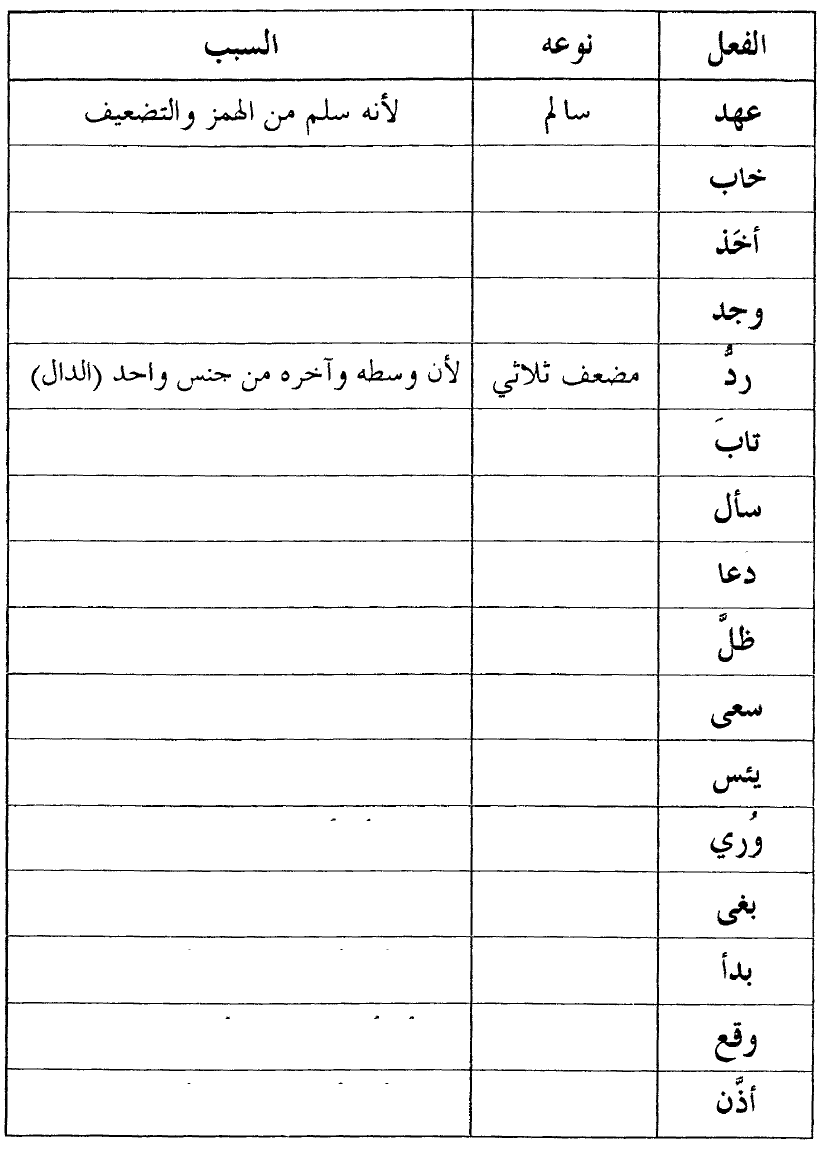 الفعل نوعه السبب
عهد سالم لأنه سلم من الهمز والتضعيف
خاب
أخَذ
وجد
ردُّ مضعف ثلاثي لأن وسطه وآخره من جنس واحد (الدال)
تابَ
سأل
دَعا
ظلَّ
سعى
يئس
وُري
بغى
بدأ
وقع
أذَّن